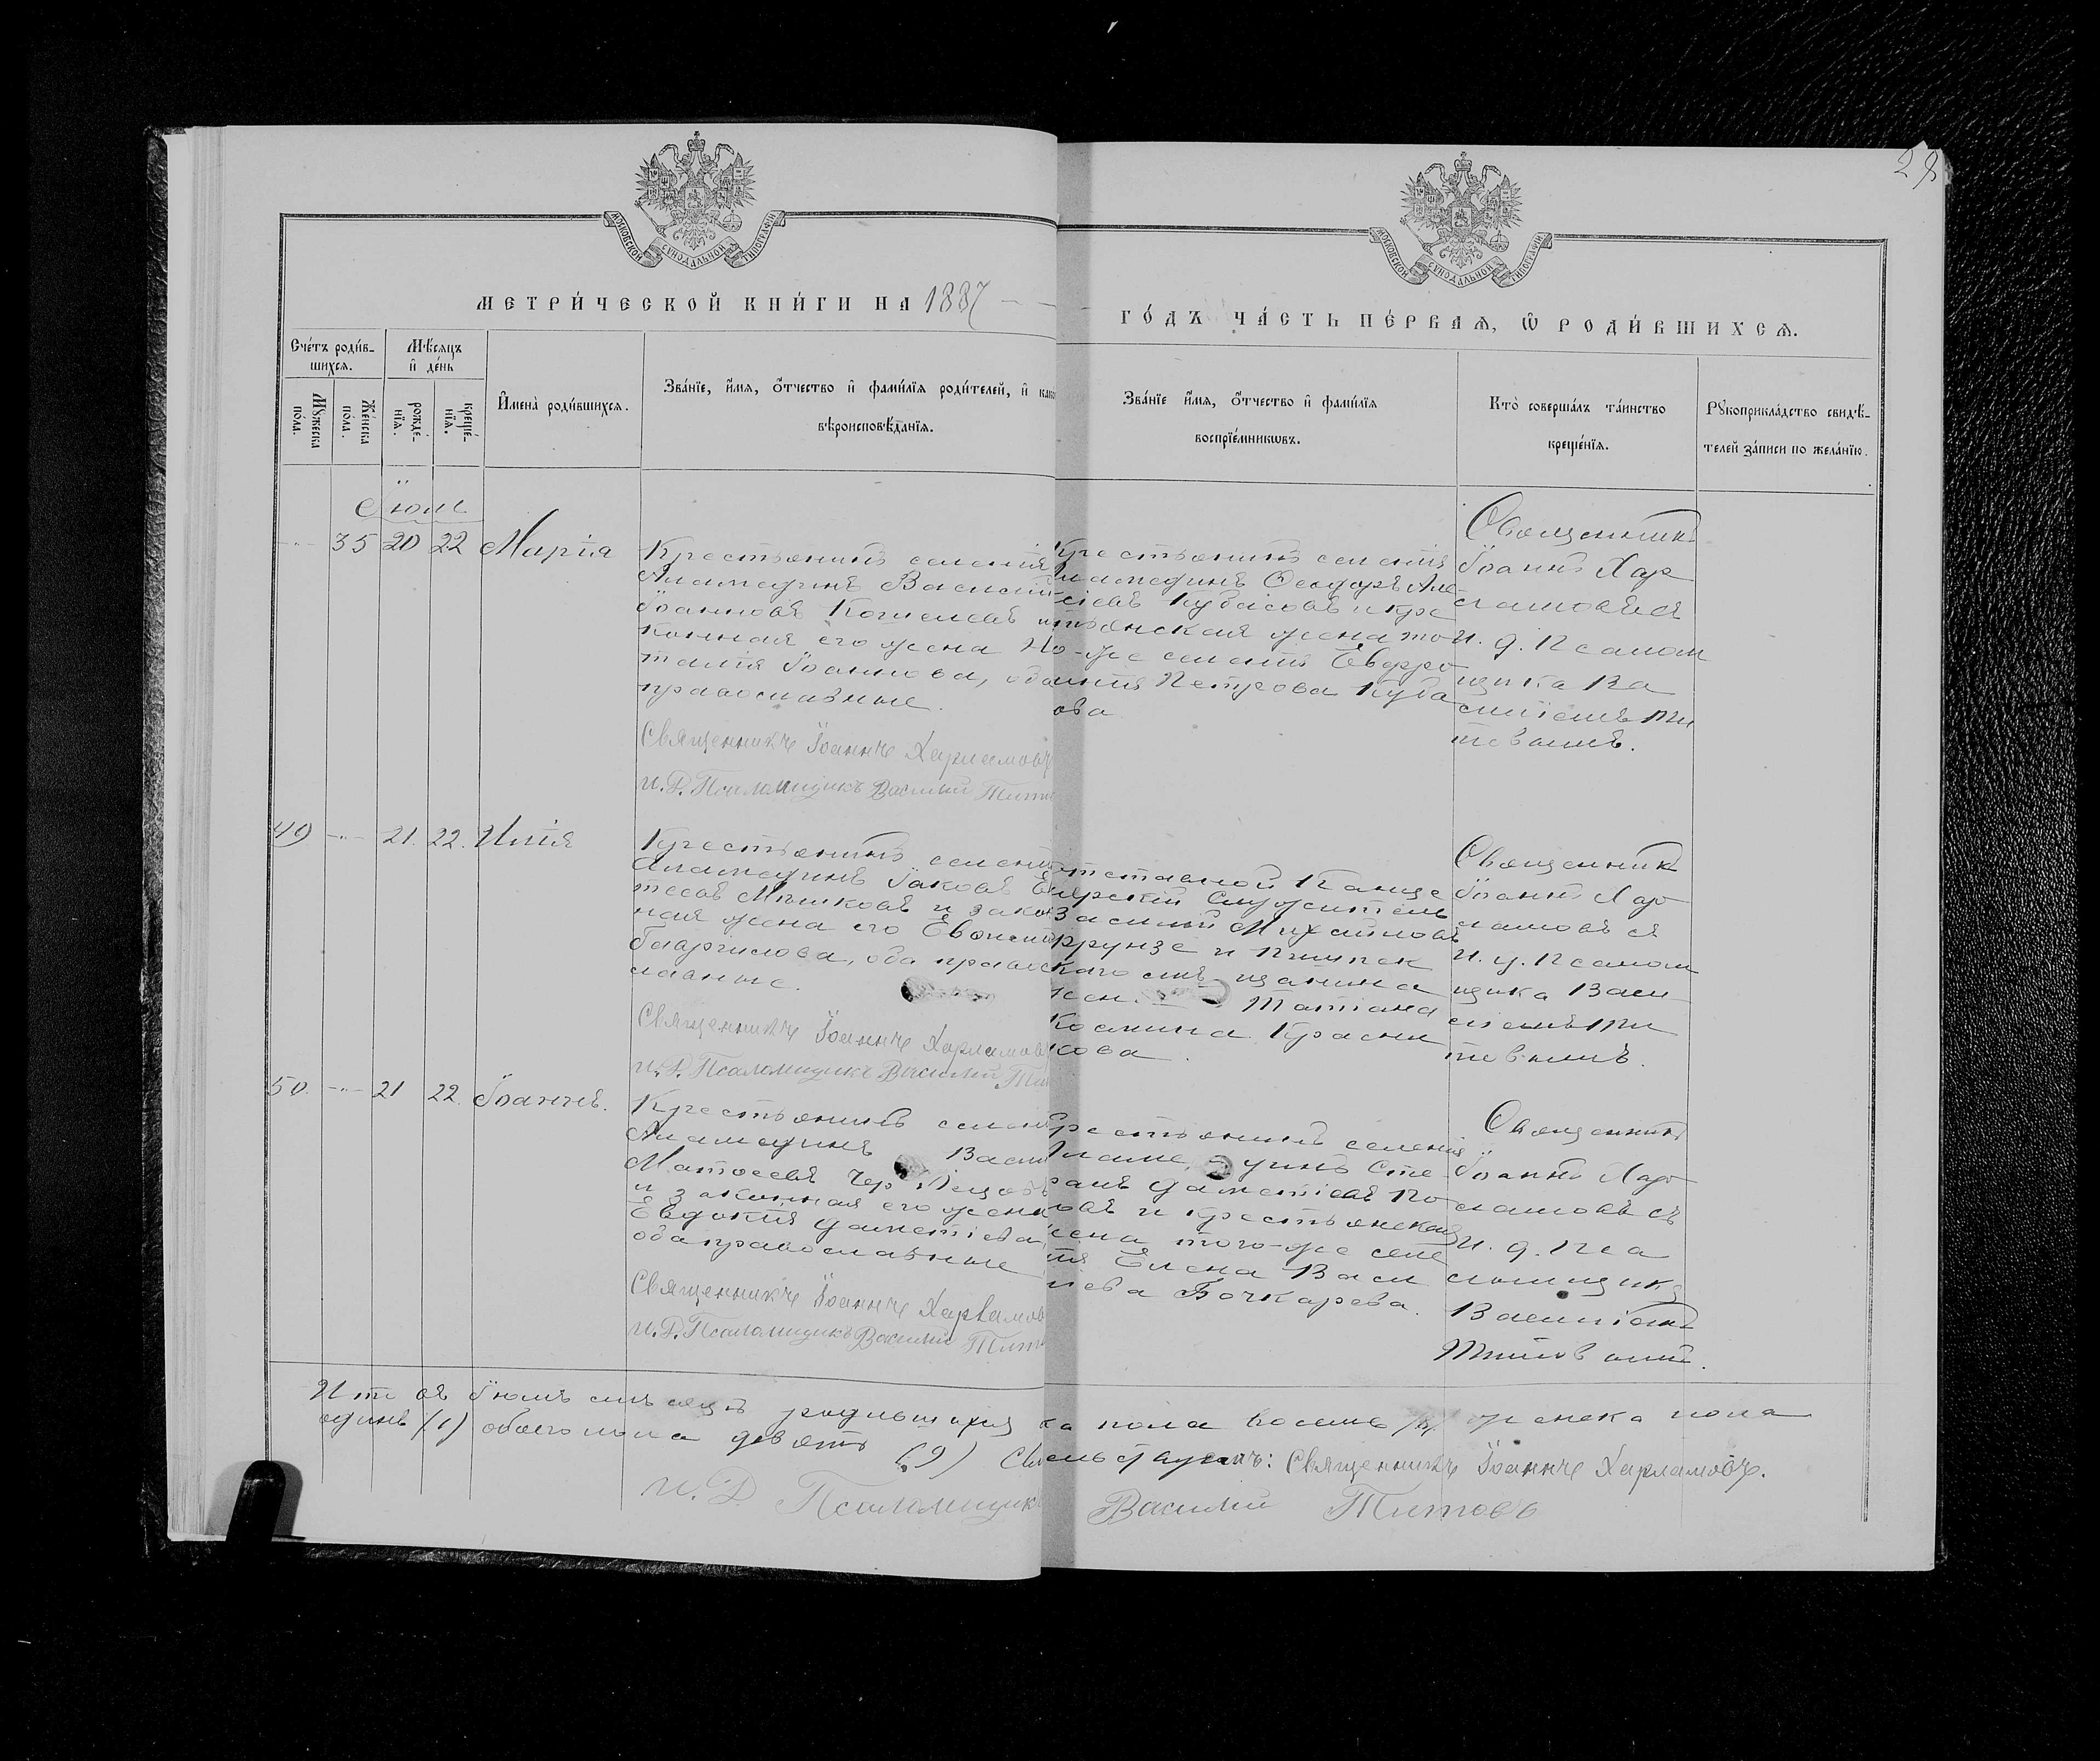 29
МОСКОВСКОЙ СѴНОДАЛЬНОЙ ТИПОГРАФІИ
МОСКОВСКОЙ СѴНОДАЛЬНОЙ ТИПОГРАФІИ
МЕТРИ́ЧЕСКОЙ КНИ́ГИ НА 1887
ГО́ДЪ ЧА́СТЬ ПЕ́РВАѦ, Ѡ҆ РОДИ́ВШИХСѦ.
Сче́тъ роди́в-
шихсѧ.
Мꙋ́жеска
по́ла.
Же́нска
по́ла.
Мѣ́сѧцъ
и҆ де́нь
рожде́-
нїѧ.
креще́-
нїѧ.
И҆мена̀ роди́вшихсѧ.
Зва́нїе, и҆́мѧ, ѻ҆́тчество и҆ фами́лїѧ роди́телей, и҆ како
вѣроисповѣ́данїѧ.
Зва́нїе и҆́мѧ, ѻ҆́тчество и҆ фами́лїѧ
воспрїе́мникѡвъ.
Кто̀ соверша́лъ та́инство
креще́нїѧ.
Рꙋкоприкла́дство свидѣ́-
телей за́писи по жела́нїю.
Іюль
35 20 22 Марія
Крестьянинъ селенія
Аламединъ Василій
Іоанновъ Кошелевъ и
конная его жена На
талія Іоаннова, оба
православные.
Священникъ Іоаннъ Харламовъ
И. Д. Псаломщикъ Василій Тито
Крестьянинъ селенія
Аламединъ Ѳеодоръ Але
сіевъ Кубасовъ и кре
стьянская жена то
го-же селенія Евфро
инія Петрова Куба
ова
Священникъ
Іоаннъ Хар
ламовъ съ
И. д. Псалом
щика Ва
силіемъ Ти
товымъ.
49 21. 22. Илія
Крестьянинъ селені
Аламединъ Іаковъ
Мѣшковъ и закон
ная жена его
оба правос
лавные.
Священникъ Іоаннъ Харламовъ
И. Д. Псаломщикъ Василій Ти
тставной Канце
ярскій Служитель
Василій Михаиловъ
Фрунзе и Пишпек
каго мѣщанина
жен. Татіана
Красни
кова.
Священникъ
Іоаннъ Хар
ламовъ съ
И. д. Псалом
щика Васи
ліемъ Ти
товымъ.
50. 21 22. Іоаннъ.
Крестьянинъ селен
Аламединъ Васи
Матѳеевъ
и законная его жена
Евдокія Дометіева,
оба православные
Священникъ Іоаннъ Харламов
И. Д. Псаломщикъ Василій Тито
рестьянинъ селенія
ламединъ Сте
фанъ Дометіевъ По
овъ и крестьянская
жена того-же селе
нія Елена Васи
ьева Бочкарева.
Священникъ
Іоаннъ Хар
ламовъ съ
И. д. Пса
ломщика
Василіемъ
Титовымъ.
Итого въ Іюлѣ мѣсяцѣ родившихся ка пола восемь /8/ женска пола
одинъ (1) обоего пола девять (9) Свидѣтельствуемъ: Священникъ Іоаннъ Харламовъ.
И. Д. Псаломщикъ Василій Титовъ